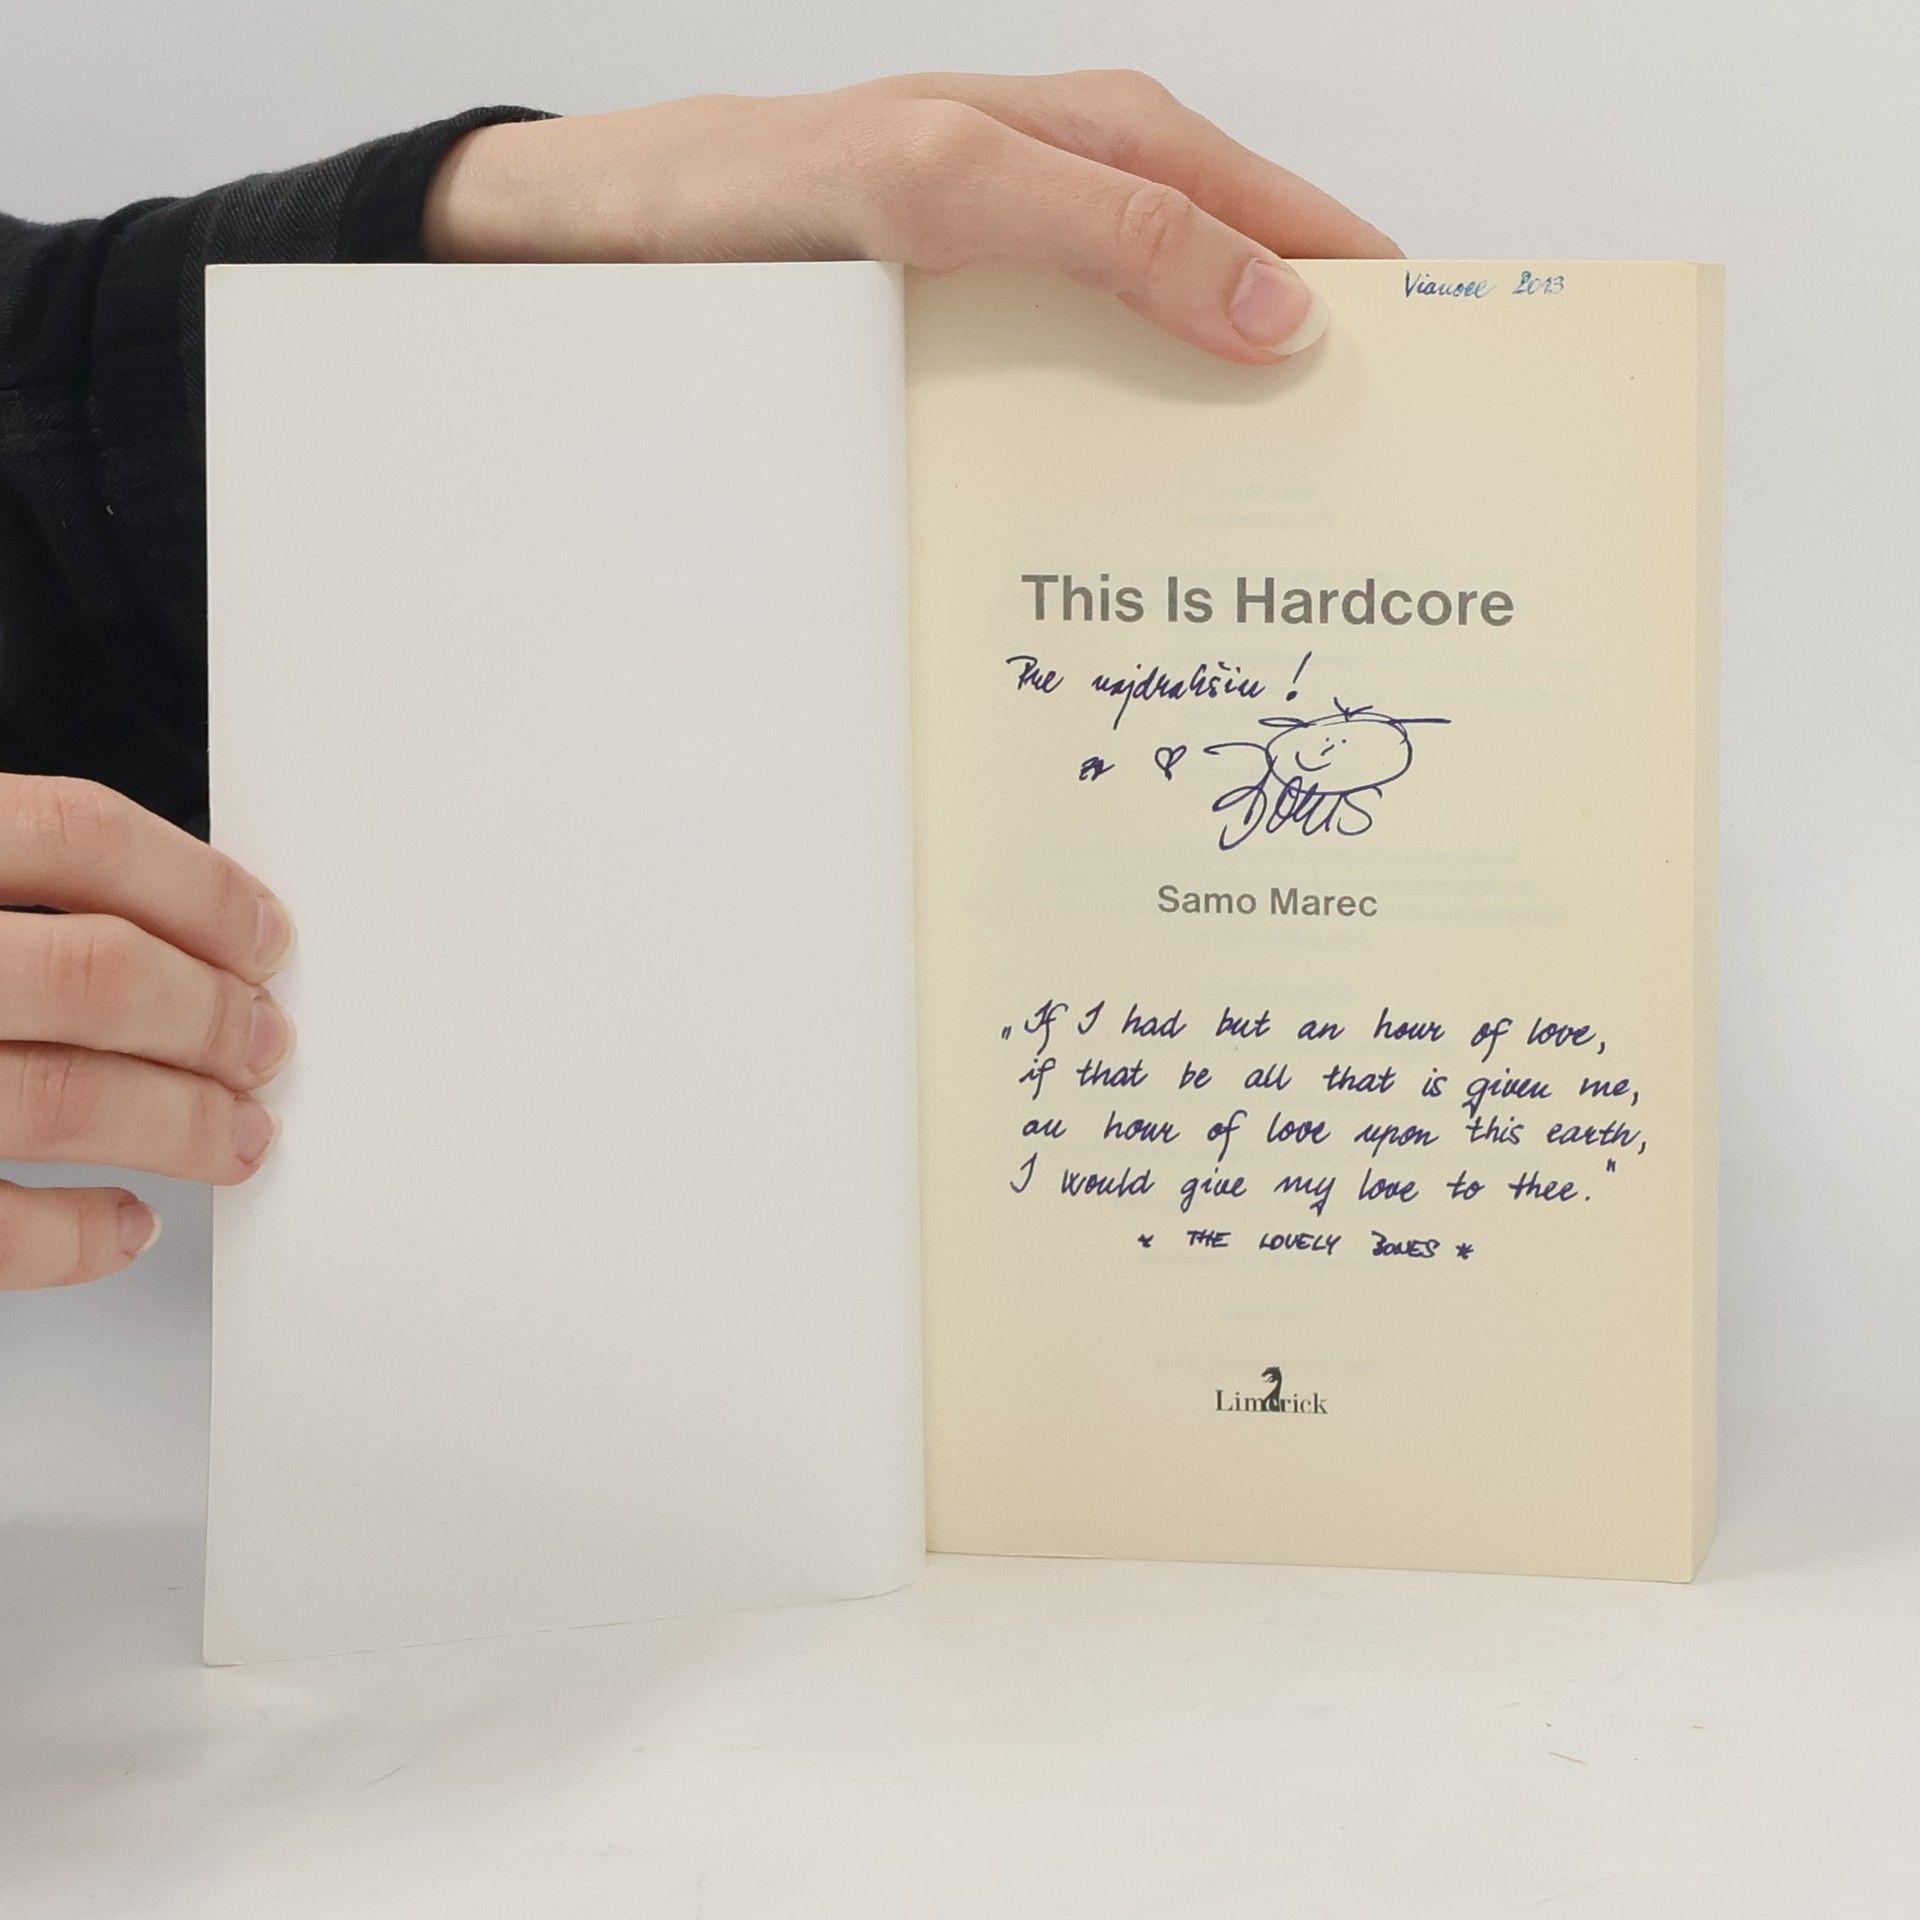 Vianoce 2013
This Is Hardcore
Pre najdrahšiu!
Samo Marec
„If I had but an hour of love,
if that be all that is given me,
an hour of love upon this earth,
I would give my love to thee."
* THE LOVELY BONES *
Limerick